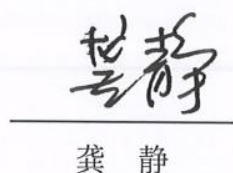 龚静
龚 静